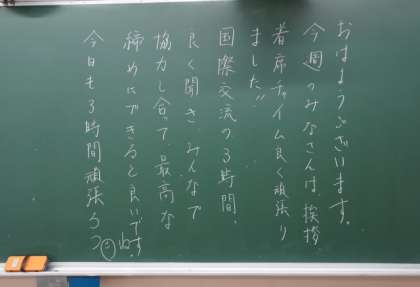 おはようございます。
今週のみなさんは、挨拶、
着席チャイム良く頑張り
ました!!
国際交流の3時間、
良く聞き、みんなで
協力し合って、最高な
締めにできると良いですね。
今日も3時間頑張ろう